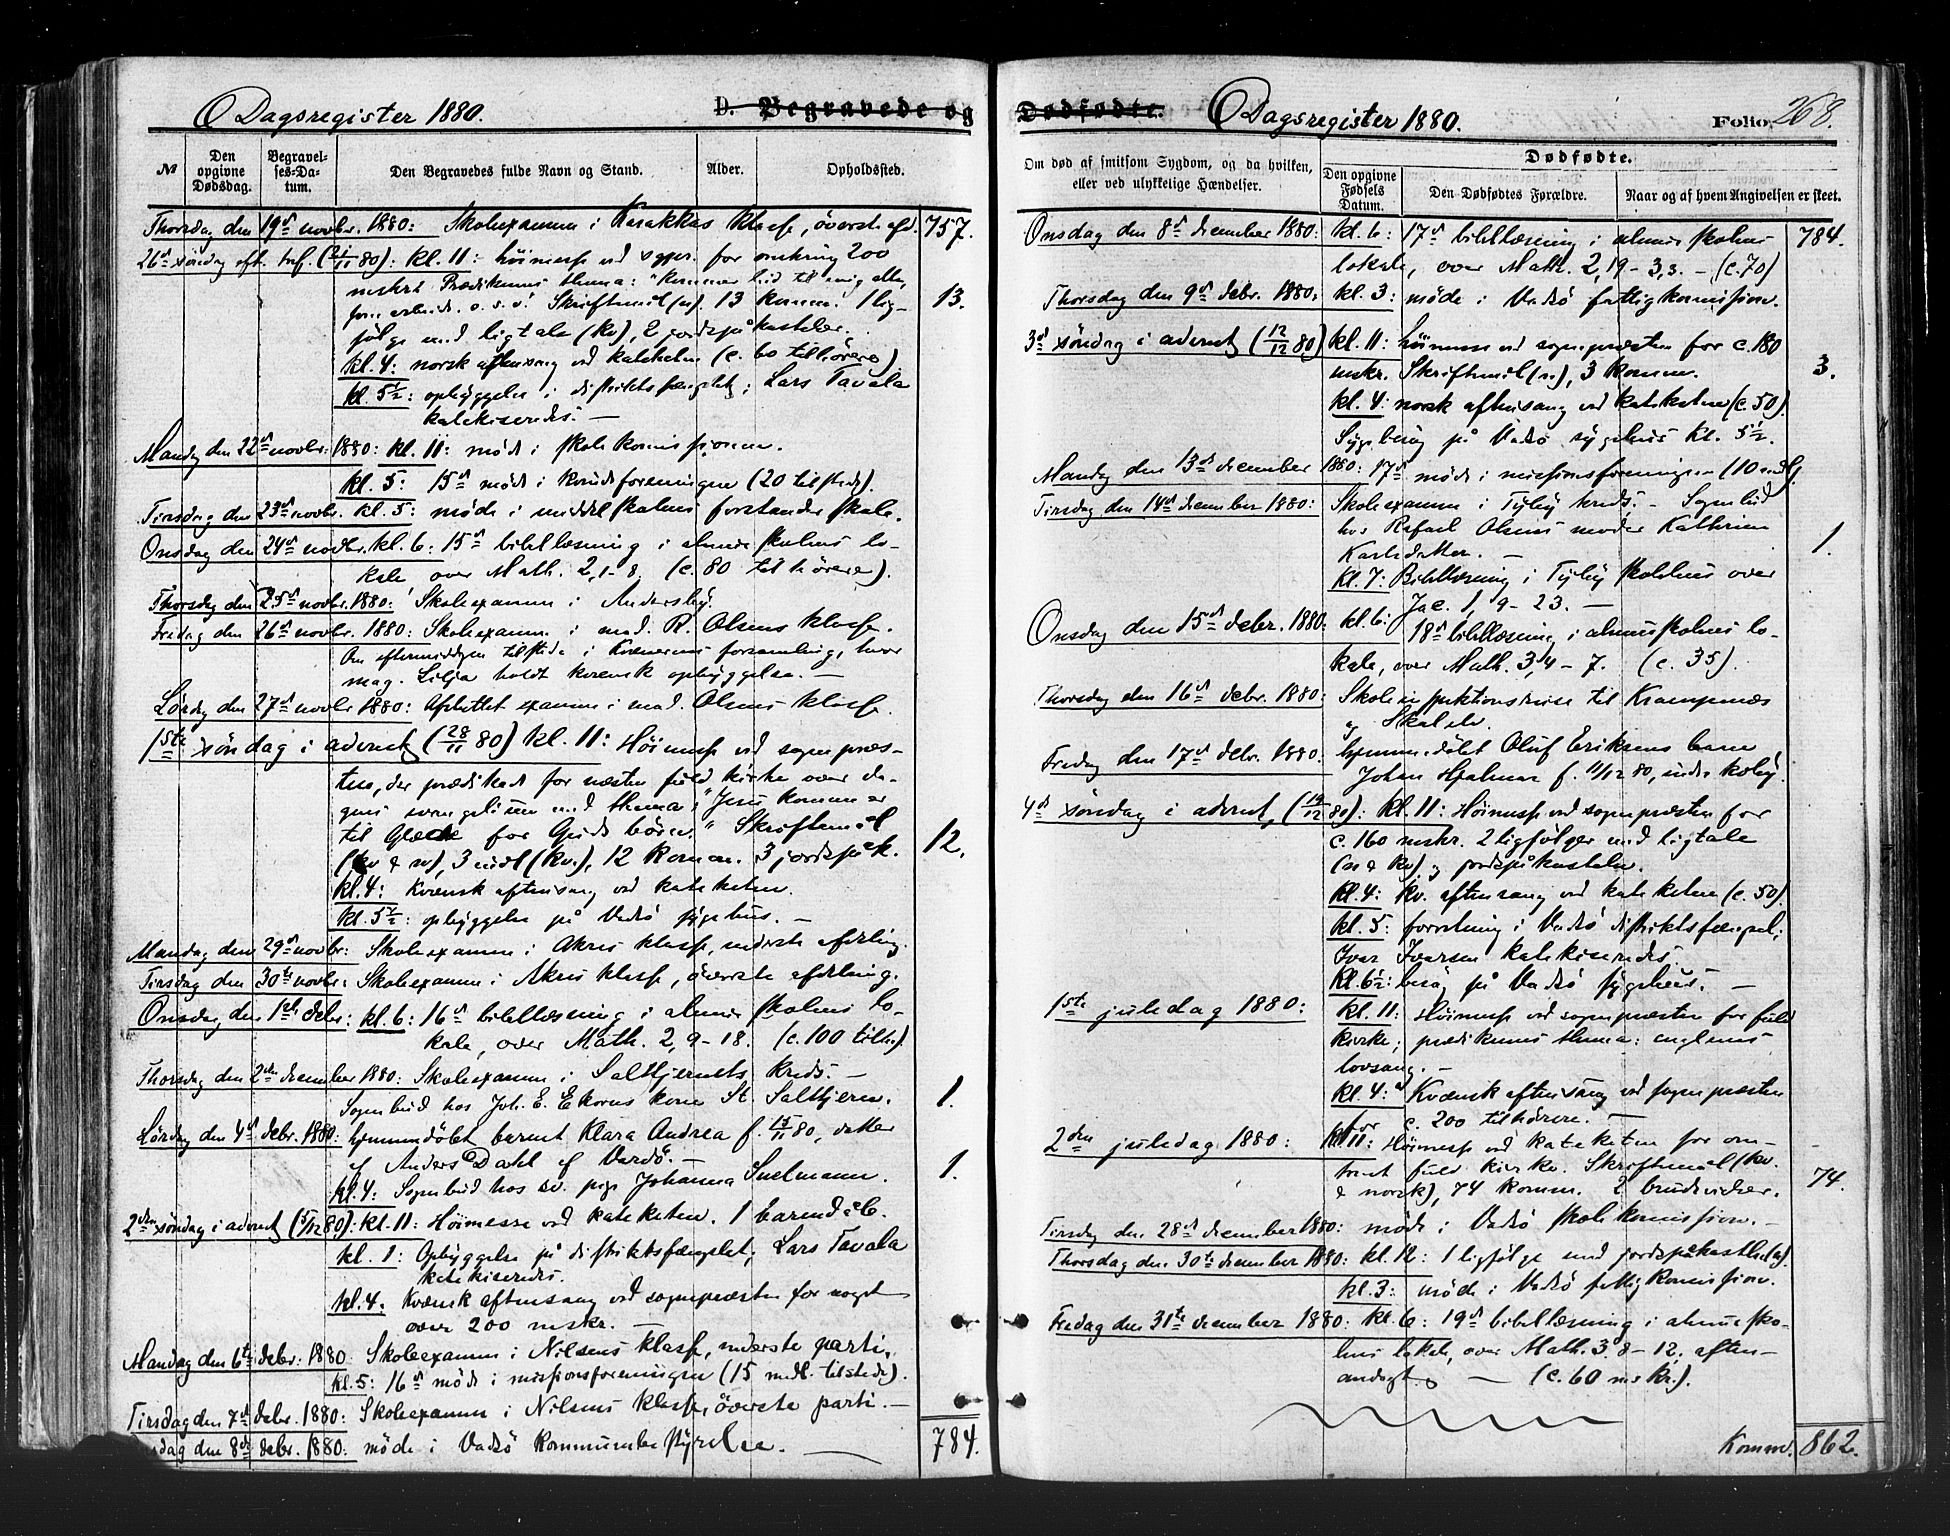 Dagsregister 1880.
D. Begravede og
№
Den opgivne Dødsdag.
Begravelses-Datum.
Den Begravedes fulde Navn og Stand.
Alder.
Opholdssted.
Thorsdag den 19de novbr. 1880: Skoleexamen i Karakkas klasse, överste afd. 757.
26de söndag eft. tref. (21/11 80): kl. 11: höimesse ved sgpr. for omkring 200
mskr. Prædikenens thema: "Kommer hid til mig alle,
som arbeide o. s. v." Skriftemål (n). 13 komm. 1 lig- 13.
følge med ligtale (kv), 2 jordspåkastelser.
kl. 4: norsk aftensang ved kateketen (c. 60 tilhörere)
kl. 5½: opbyggelse i distriktsfængslet; Lars Tavala
katekiseredes. —
Mandag den 22de novbr. 1880: kl. 11: møde i skolekommissionen.
kl. 5: 15de møde i kvindeforeningen (20 tilstede).
Tirsdag den 23de novbr. kl. 5: møde i middelskolens forstanderskab.
Onsdag den 24de novbr. kl. 6: 15de bibellæsning i almueskolens lo-
kale, over Math. 2, 1-8. (c. 80 tilhörere).
Thorsdag den 25de novbr. 1880: Skoleexamen i Andersby.
Fredag den 26de novbr. 1880: Skoleexamen i mad. R. Olsens klasse.
Om eftermiddagen tilstede i Kvænernes forsamling, hvor
mag. Lilja holdt kvensk opbyggelse. —
Lørdag den 27de novbr 1880: Afsluttet examen i mad. Olsens klasse.
1ste søndag i advent (28/11 80) kl. 11: Höimesse ved sognepræs-
ten, der prædikede for næsten fuld kirke over da-
gens evangelium med thema: "Jesu komme er
til Glæde for Guds börn." Skriftemål
(kv & n), 3 indl (kv.), 12 komm. 3 jordspåk. 12.
kl. 4: Kvænsk aftensang ved kateketen.
kl. 5½: opbyggelse på Vadsö sygehus. —
Mandag den 29de novbr: Skoleexamen i Akres klasse, nederste afdeling.
Tirsdag den 30te novbr: Skoleexamen i Akres klasse, överste afdeling.
Onsdag den 1ste debr: kl. 6: 16de bibellæsning i almueskolens lo-
kale, over Math. 2, 9-18. (c. 100 tilh.)
Thorsdag den 2den december 1880: Skoleexamen i Saltkjernets Kreds. —
Sognebud hos Joh. E. Ekorns kone St. Saltkjern. 1.
Lørdag den 4de debr. 1880: hjemmedöbt barnet Klara Andrea f. 13/11 80, datter
af Anders Dahl af Vardö. —
kl. 4: Sognebud hos sv. pige Johanna Snelmann. 1.
2den søndag i advent (5/12 80): kl. 11: Höimesse ved kateketen. 1 barnedåb.
kl. 1: Opbyggelse på distriktsfængslet; Lars Tavala
katekiseredes.
kl. 4: Kvænsk aftensang ved sognepræsten for noget
over 200 mskr. —
Mandag den 6te debr. 1880: Skoleexamen i Nilsens klasse, nederste parti.
kl. 5: 16de møde i missionsforeningen (15 medl. tilstede).
Tirsdag den 7de debr. 1880: Skoleexamen i Nilsens klasse, överste parti. —
Onsdag den 8de debr. 1880: møde i Vadsö kommunebestyrelse. — 784.
Dødfødte.
Dagsregister 1880.
Folio 268.
Om død af smitsom Sygdom, og da hvilken, eller ved ulykkelige Hændelser.
Dødfødte.
Den opgivne Fødsels Datum.
Den Dødfødtes Forældre.
Naar og af hvem Angivelsen er skeet.
Onsdag den 8de december 1880: kl. 6: 17de bibellæsning i almueskolens 784.
lokale, over Math. 2, 19 - 3, 3. - (c. 70)
Thorsdag den 9de debr. 1880: kl. 3: møde i Vadsö fattigkommission.
3de söndag i advent (12/12 80) kl. 11: höimesse ved sognepræsten for c. 180
mskr. Skriftemål (n.), 3 komm. 3.
kl. 4: norsk aftensang ved kateketen (c. 50).
Sygebesög på Vadsö sygehus kl. 5½.
Mandag den 13de december 1880: 17de møde i missionsforeningen (10 medl.)
Tirsdag den 14de december 1880: Skoleexamen i Tyby kreds. - Sognebud
hos Rafael Olsens moder Kathrina
Karlsdatter. — 1.
kl. 7: Bibellæsning i Tyby skolehus over
Jac. 1, 9-23. —
Onsdag den 15de debr. 1880: kl. 6: 18de bibellæsning i almueskolens lo-
kale, over Math. 3, 4-7. (c. 35).
Thorsdag den 16de debr. 1880: Skoleinspektionsreise til Krampenæs
og Skalelv.
Fredag den 17de debr. 1880: hjemmedöbt Oluf Eriksens barn
Johan Hjalmar f. 11/12 80, indre kvby.
4de søndag i advent, (19/12 80): kl. 11: Höimesse ved sognepræsten for
c. 160 mskr. 2 ligfölger med ligtale
(n & kv). og jordspåkastelse.
kl. 4: kv. aftensang ved kateketen (c. 50).
kl. 5: forretning i Vadsö distriktsfængsel;
Ivar Ivarsen katekiseredes.
kl. 6½: besög på Vadsö sygehus. —
1ste juledag 1880: kl. 11: Höimesse ved sognepræsten for fuld
kirke; prædikenens thema: englenes
lovsang. —
kl. 4: Kvænsk aftensang ved sognepræsten
for c. 200 tilhörere. —
2den juledag 1880: kl. 11: Höimesse ved kateketen for om-
trent fuld kirke. Skriftemål (kv.
& norsk), 74 komm. 2 brudevielser. 74.
Tirsdag den 28de december 1880: møde i Vadsö skolekommission. —
Thorsdag den 30te december 1880: kl. 12: 1 ligfölge med jordspåkastelse.
kl. 3: møde i Vadsö fattigkommission.
Fredag den 31te december 1880: kl. 6: 19de bibellæsning i almuesko-
lens lokale, over Math. 3, 8-12, aften-
andagt. — (c. 60 mskr.).
Komm. 862.